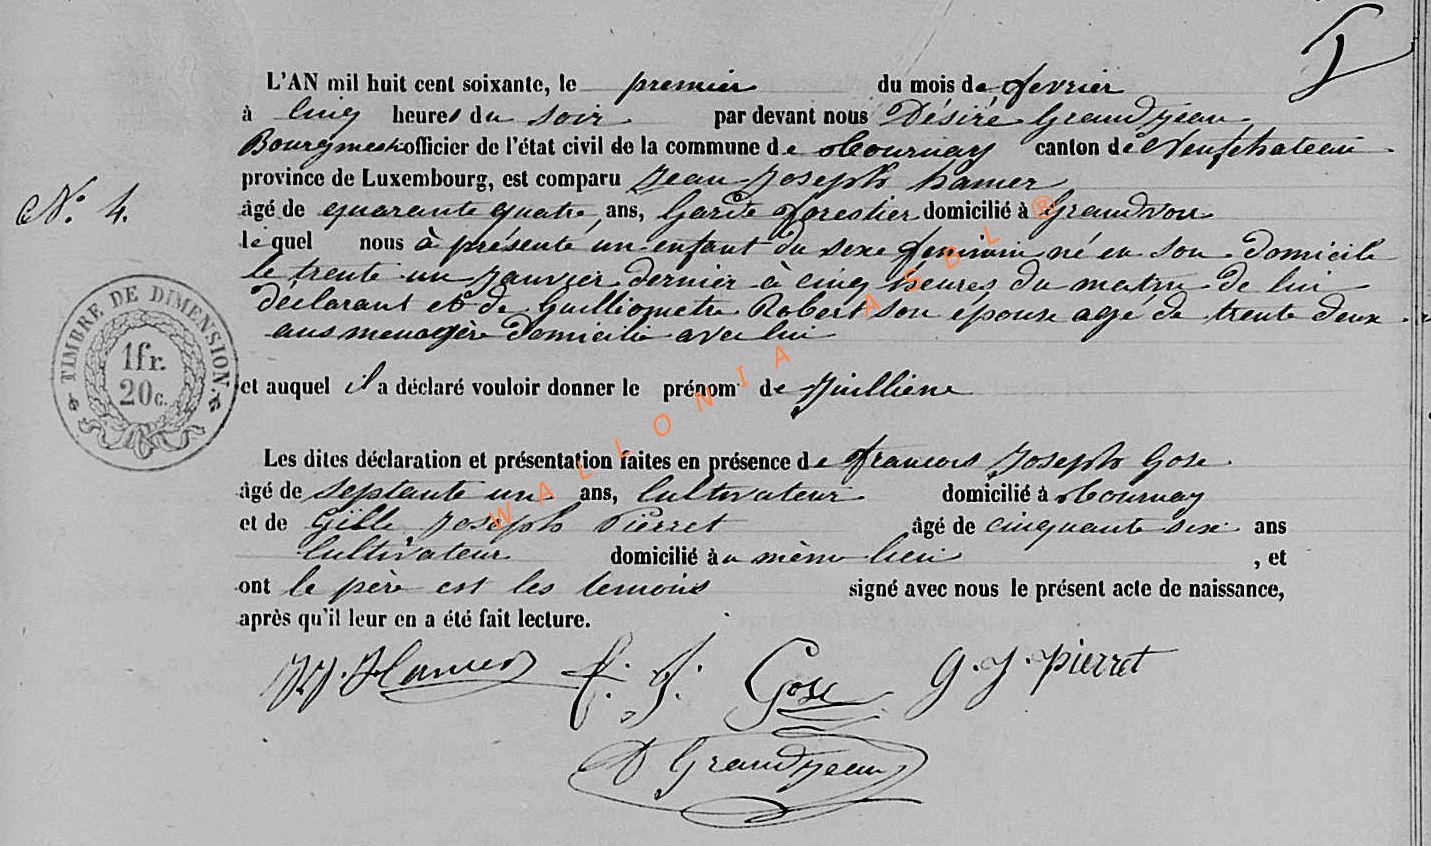 L'AN mil huit cent soixante, le premier du mois de fevrier
à cinq heures du soir par devant nous Désiré Grandjean
Bourgmestre officier de l'état civil de la commune de Tournay canton de Neufchateau
province de Luxembourg, est comparu Jean Joseph hamer
N.° 4. âgé de quarante quatre ans, Garde forestier domicilié à Grandvoir
le quel nous à présenté un enfant du sexe feminin né en son domicile
le trente un janvier dernier à cinq heures du matin de lui
déclarant et de Robert son épouse agé de trente deux
ans menagère domicilié avec lui
TIMBRE DE DIMENSION.
1fr.
20c.
et auquel il a déclaré vouloir donner le prénom de Juilliène
Les dites déclaration et présentation faites en présence de francois Joseph Gose
âgé de septante un ans, Cultivateur domicilié à Tournay
et de Gille Joseph Pierret âgé de cinquante six ans
Cultivateur domicilié au même lieu , et
ont le père est les temoins signé avec nous le présent acte de naissance,
après qu'il leur en a été fait lecture.
J.J. Hamer f. J. Gose G. J. Pierret
D Grandjean
WALLONIA ASBL ®